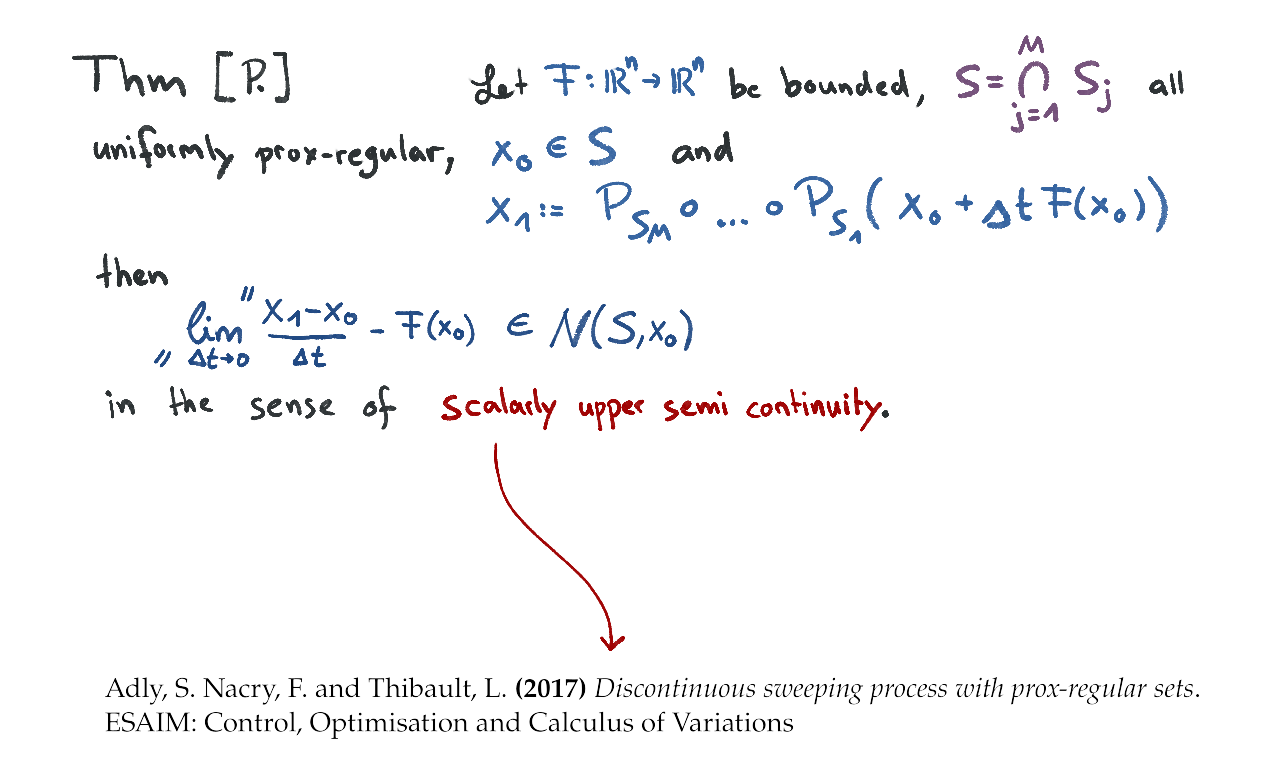 Thm [P.] Let F : ℝⁿ → ℝⁿ be bounded, S = ⋂_{j=1}^{M} S_j all
uniformly prox-regular, x₀ ∈ S and
x₁ := P_{S_M} ∘ ... ∘ P_{S_1} ( x₀ + Δt F(x₀))
then
" lim_{Δt→0} " (x₁ - x₀)/Δt - F(x₀) ∈ N(S, x₀)
in the sense of scalarly upper semi continuity.
Adly, S. Nacry, F. and Thibault, L. (2017) Discontinuous sweeping process with prox-regular sets.
ESAIM: Control, Optimisation and Calculus of Variations